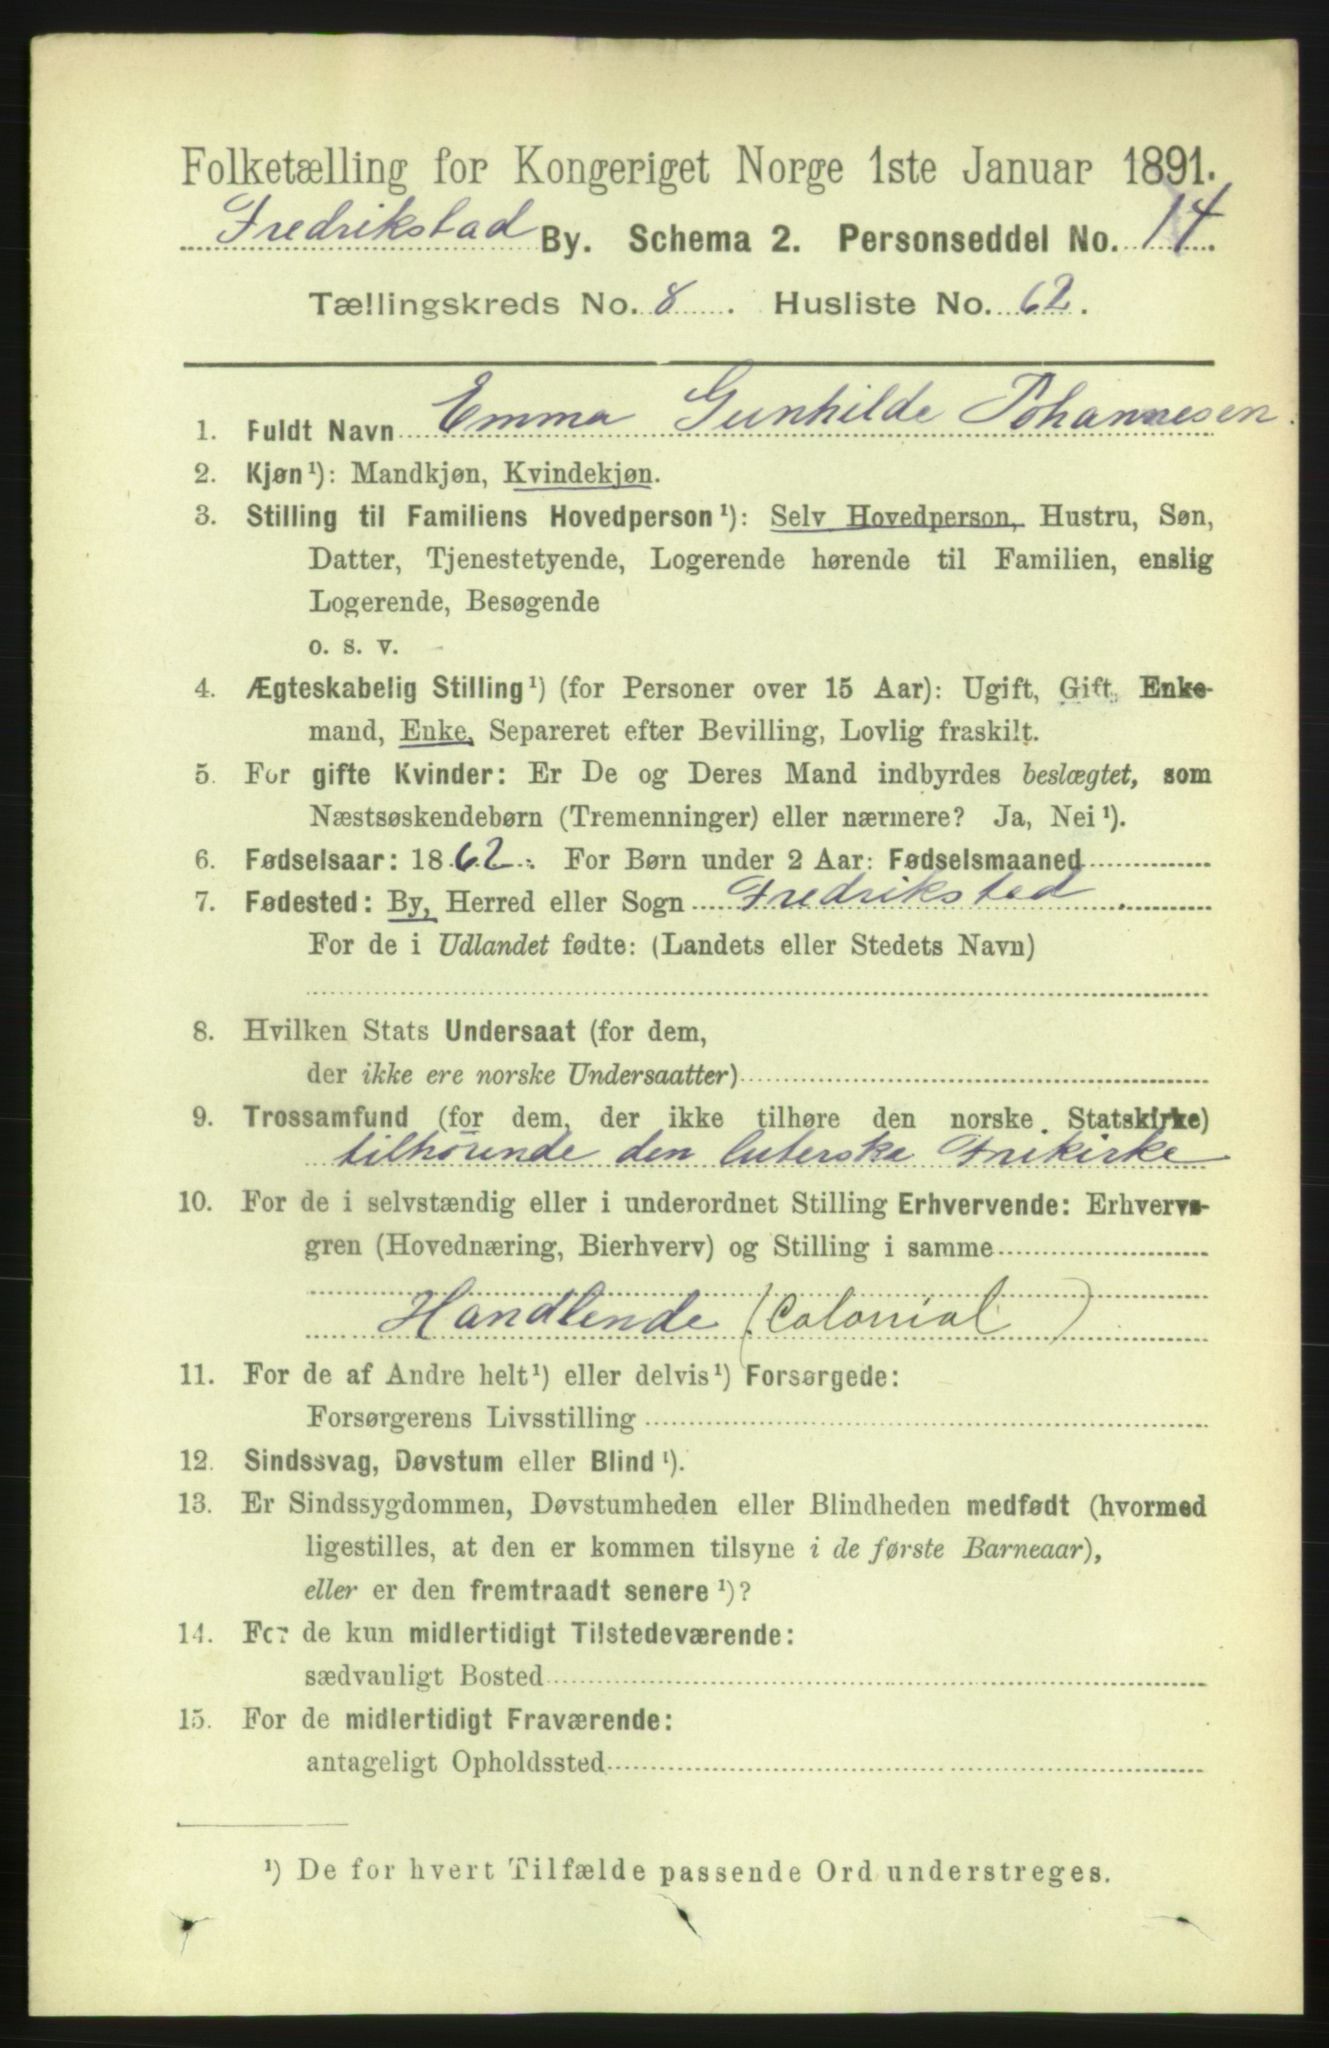 Folketælling for Kongeriget Norge 1ste Januar 1891.
Fredrikstad By. Schema 2. Personseddel No. 14.
Tællingskreds No. 8. Husliste No. 62.
1. Fuldt Navn Emma Gunhilde Johannesen.
2. Kjøn¹): Mandkjøn, Kvindekjøn.
3. Stilling til Familiens Hovedperson¹): Selv Hovedperson, Hustru, Søn,
Datter, Tjenestetyende, Logerende hørende til Familien, enslig
Logerende, Besøgende
o. s. v.
4. Ægteskabelig Stilling¹) (for Personer over 15 Aar): Ugift, Gift, Enke-
mand, Enke, Separeret efter Bevilling, Lovlig fraskilt.
5. For gifte Kvinder: Er De og Deres Mand indbyrdes beslægtet, som
Næstsøskendebørn (Tremenninger) eller nærmere? Ja, Nei¹).
6. Fødselsaar: 1862. For Børn under 2 Aar: Fødselsmaaned
7. Fødested: By, Herred eller Sogn Fredrikstad.
For de i Udlandet fødte: (Landets eller Stedets Navn)
8. Hvilken Stats Undersaat (for dem,
der ikke ere norske Undersaatter)
9. Trossamfund (for dem, der ikke tilhøre den norske Statskirke)
tilhørende den luterske Frikirke
10. For de i selvstændig eller i underordnet Stilling Erhvervende: Erhvervs-
gren (Hovednæring, Bierhverv) og Stilling i samme
Handlende (Colonial)
11. For de af Andre helt¹) eller delvis¹) Forsørgede:
Forsørgerens Livsstilling
12. Sindssvag, Døvstum eller Blind¹).
13. Er Sindssygdommen, Døvstumheden eller Blindheden medfødt (hvormed
ligestilles, at den er kommen tilsyne i de første Barneaar),
eller er den fremtraadt senere¹)?
14. For de kun midlertidigt Tilstedeværende:
sædvanligt Bosted
15. For de midlertidigt Fraværende:
antageligt Opholdssted
¹) De for hvert Tilfælde passende Ord understreges.